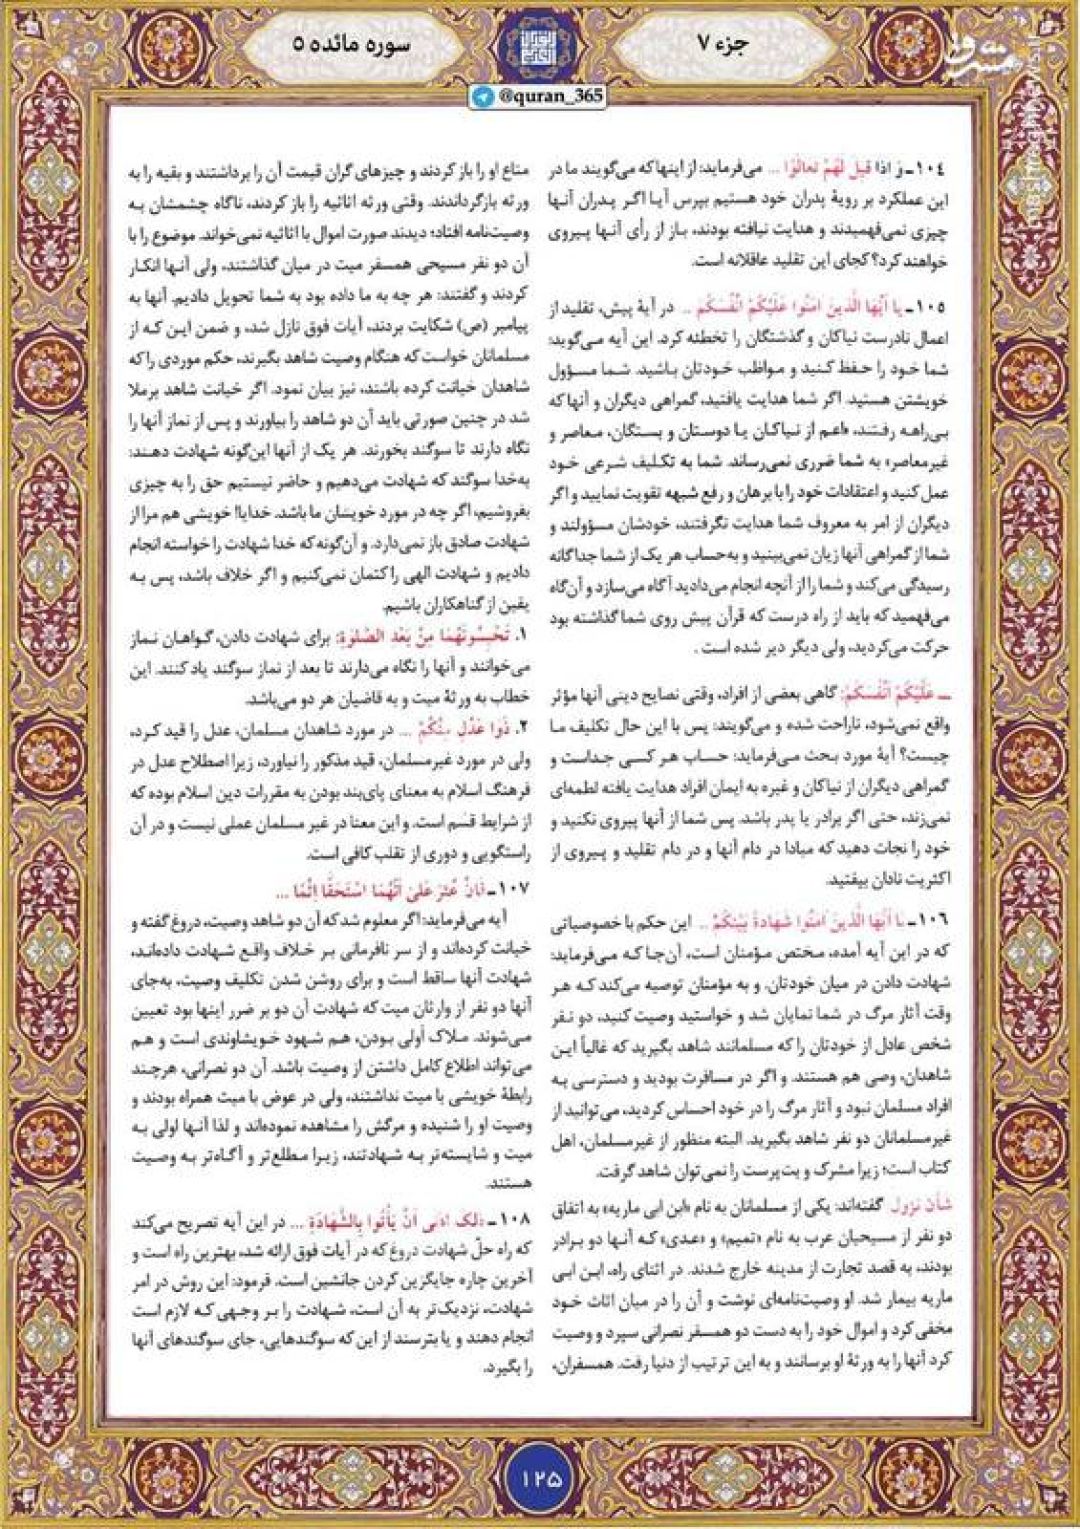 جزء ۷
سوره مائده ۵
@quran_365
۱۰۴ـ وَ اِذا قیلَ لَهُمْ تَعالَوْا ... می‌فرماید: از اینها که می‌گویند ما در
این عملکرد بر رویهٔ پدران خود هستیم بپرس آیا اگر پدران آنها
چیزی نمی‌فهمیدند و هدایت نیافته بودند، باز از رأی آنها پیروی
خواهند کرد؟ کجای این تقلید عاقلانه است.
۱۰۵ـ یا اَیُّهَا الَّذینَ امَنُوا عَلَیْکُمْ اَنْفُسَکُمْ ... در آیهٔ پیش، تقلید از
اعمال نادرست نیاکان و گذشتگان را تخطئه کرد. این آیه می‌گوید:
شما خود را حفظ کنید و مواظب خودتان باشید. شما مسؤول
خویشتن هستید. اگر شما هدایت یافتید، گمراهی دیگران و آنها که
بی‌راهه رفتند، «اعم از نیاکان یا دوستان و بستگان، معاصر و
غیرمعاصر» به شما ضرری نمی‌رساند. شما به تکلیف شرعی خود
عمل کنید و اعتقادات خود را با برهان و رفع شبهه تقویت نمایید و اگر
دیگران از امر به معروف شما هدایت نگرفتند، خودشان مسؤولند و
شما از گمراهی آنها زیان نمی‌بینید و به‌حساب هر یک از شما جداگانه
رسیدگی می‌کند و شما را از آنچه انجام می‌دادید آگاه می‌سازد و آن‌گاه
می‌فهمید که باید از راه درست که قرآن پیش روی شما گذاشته بود
حرکت می‌کردید، ولی دیگر دیر شده است .
ــ عَلَیْکُمْ اَنْفُسَکُمْ: گاهی بعضی از افراد، وقتی نصایح دینی آنها مؤثر
واقع نمی‌شود، ناراحت شده و می‌گویند: پس با این حال تکلیف ما
چیست؟ آیهٔ مورد بحث می‌فرماید: حساب هر کسی جداست و
گمراهی دیگران از نیاکان و غیره به ایمان افراد هدایت یافته لطمه‌ای
نمی‌زند، حتی اگر برادر یا پدر باشد. پس شما از آنها پیروی نکنید و
خود را نجات دهید که مبادا در دام آنها و در دام تقلید و پیروی از
اکثریت نادان بیفتید.
۱۰۶ـ یا اَیُّهَا الَّذینَ امَنُوا شَهادَةُ بَیْنِکُمْ ... این حکم با خصوصیاتی
که در این آیه آمده، مختص مؤمنان است، آن‌جا که می‌فرماید:
شهادت دادن در میان خودتان. و به مؤمنان توصیه می‌کند که هر
وقت آثار مرگ در شما نمایان شد و خواستید وصیت کنید، دو نفر
شخص عادل از خودتان را که مسلمانند شاهد بگیرید که غالباً این
شاهدان، وصی هم هستند. و اگر در مسافرت بودید و دسترسی به
افراد مسلمان نبود و آثار مرگ را در خود احساس کردید، می‌توانید از
غیرمسلمانان دو نفر شاهد بگیرید. البته منظور از غیرمسلمان، اهل
کتاب است؛ زیرا مشرک و بت‌پرست را نمی‌توان شاهد گرفت.
شأن نزول گفته‌اند: یکی از مسلمانان به نام «ابن ابی ماریه» به اتفاق
دو نفر از مسیحیان عرب به نام «تمیم» و «عدی» که آنها دو برادر
بودند، به قصد تجارت از مدینه خارج شدند. در اثنای راه، ابن ابی
ماریه بیمار شد. او وصیت‌نامه‌ای نوشت و آن را در میان اثاث خود
مخفی کرد و اموال خود را به دست دو همسفر نصرانی سپرد و وصیت
کرد آنها را به ورثهٔ او برسانند و به این ترتیب از دنیا رفت. همسفران،
متاع او را باز کردند و چیزهای گران قیمت آن را برداشتند و بقیه را به
ورثه بازگرداندند. وقتی ورثه اثاثیه را باز کردند، ناگاه چشمشان به
وصیت‌نامه افتاد؛ دیدند صورت اموال با اثاثیه نمی‌خواند. موضوع را با
آن دو نفر مسیحی همسفر میت در میان گذاشتند، ولی آنها انکار
کردند و گفتند: هر چه به ما داده بود به شما تحویل دادیم. آنها به
پیامبر (ص) شکایت بردند، آیات فوق نازل شد، و ضمن این که از
مسلمانان خواست که هنگام وصیت شاهد بگیرند، حکم موردی را که
شاهدان خیانت کرده باشند، نیز بیان نمود. اگر خیانت شاهد برملا
شد در چنین صورتی باید آن دو شاهد را بیاورند و پس از نماز آنها را
نگاه دارند تا سوگند بخورند. هر یک از آنها این‌گونه شهادت دهند:
به‌خدا سوگند که شهادت می‌دهیم و حاضر نیستیم حق را به چیزی
بفروشیم، اگر چه در مورد خویشان ما باشد. خدایا! خویشی هم مرا از
شهادت صادق باز نمی‌دارد. و آن‌گونه که خدا شهادت را خواسته انجام
دادیم و شهادت الهی را کتمان نمی‌کنیم و اگر خلاف باشد، پس به
یقین از گناهکاران باشیم.
۱. تَحْبِسُونَهُما مِنْ بَعْدِ الصَّلوةِ: برای شهادت دادن، گواهان نماز
می‌خوانند و آنها را نگاه می‌دارند تا بعد از نماز سوگند یاد کنند. این
خطاب به ورثهٔ میت و به قاضیان هر دو می‌باشد.
۲. ذَوا عَدْلٍ مِنْکُمْ ... در مورد شاهدان مسلمان، عدل را قید کرد،
ولی در مورد غیرمسلمان، قید مذکور را نیاورد، زیرا اصطلاح عدل در
فرهنگ اسلام به معنای پای‌بند بودن به مقررات دین اسلام بوده که
از شرایط قسم است. و این معنا در غیر مسلمان عملی نیست و در آن
راستگویی و دوری از تقلب کافی است.
۱۰۷ـ فَاِنْ عُثِرَ عَلی اَنَّهُمَا اسْتَحَقّا اِثْمًا ...
آیه می‌فرماید: اگر معلوم شد که آن دو شاهد وصیت، دروغ گفته و
خیانت کرده‌اند و از سر نافرمانی بر خلاف واقع شهادت داده‌اند،
شهادت آنها ساقط است و برای روشن شدن تکلیف وصیت، به‌جای
آنها دو نفر از وارثان میت که شهادت آن دو بر ضرر اینها بود تعیین
می‌شوند. ملاک اولی بودن، هم شهود خویشاوندی است و هم
می‌تواند اطلاع کامل داشتن از وصیت باشد. آن دو نصرانی، هرچند
رابطهٔ خویشی با میت نداشتند، ولی در عوض با میت همراه بودند و
وصیت او را شنیده و مرگش را مشاهده نموده‌اند و لذا آنها اولی به
میت و شایسته‌تر به شهادتند، زیرا مطلع‌تر و آگاه‌تر به وصیت
هستند.
۱۰۸ـ ذلِکَ اَدْنی اَنْ یَأْتُوا بِالشَّهادَةِ ... در این آیه تصریح می‌کند
که راه حلّ شهادت دروغ که در آیات فوق ارائه شد، بهترین راه است و
آخرین چاره جایگزین کردن جانشین است. فرمود: این روش در امر
شهادت، نزدیک‌تر به آن است، شهادت را بر وجهی که لازم است
انجام دهند و یا بترسند از این که سوگندهایی، جای سوگندهای آنها
را بگیرد.
۱۲۵